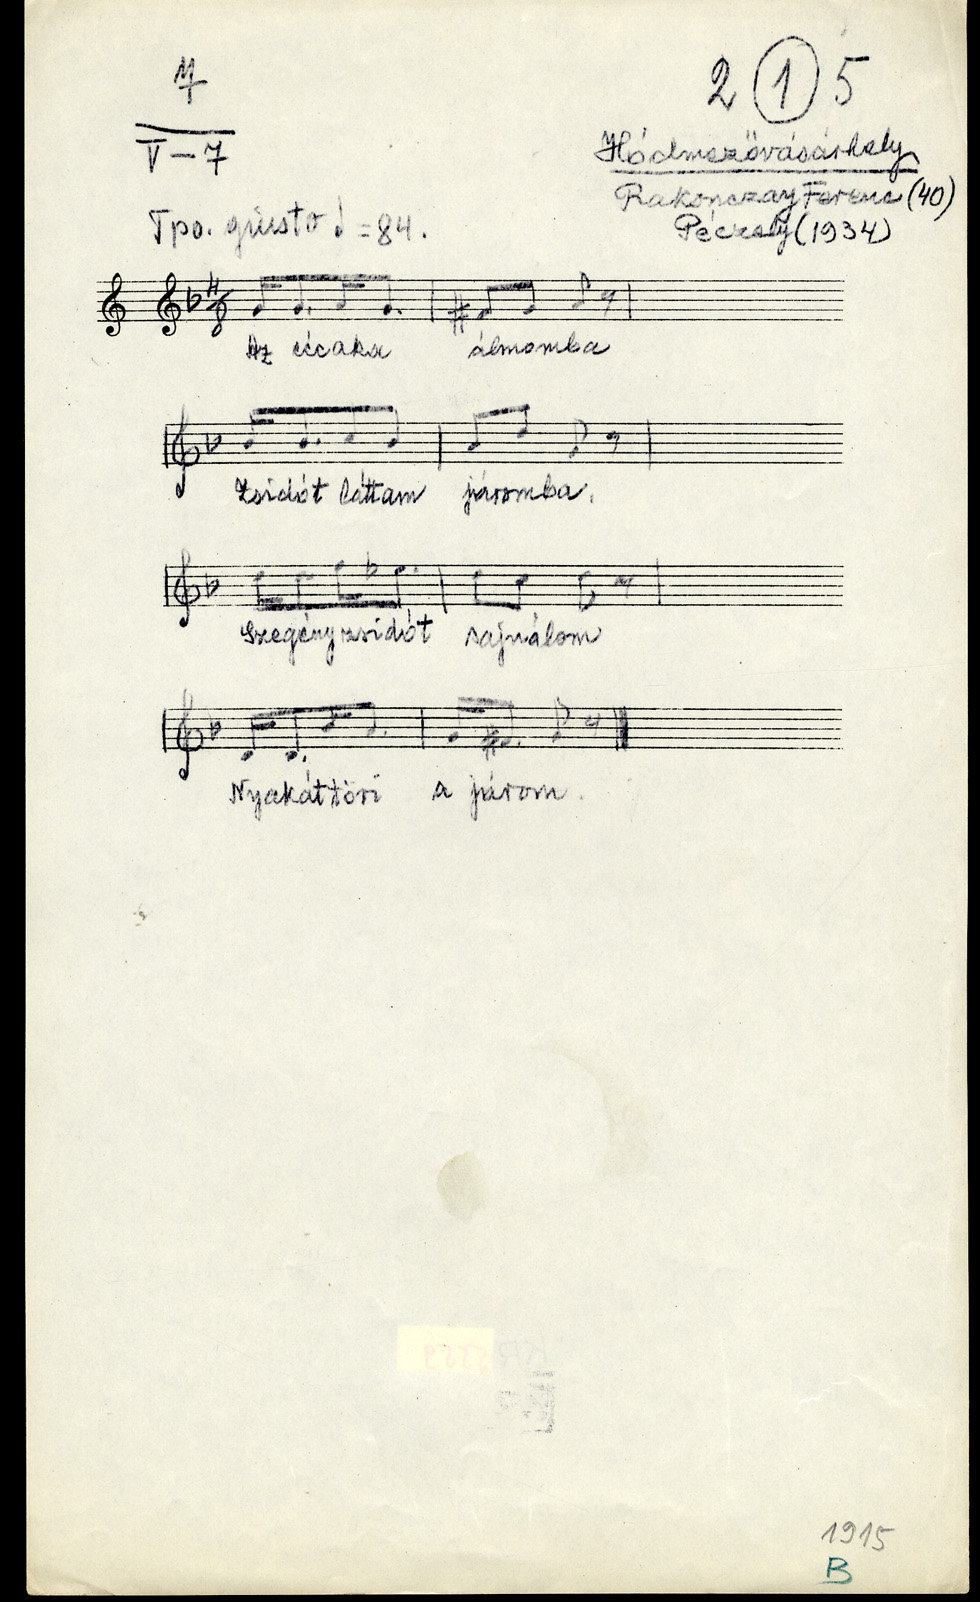 7
V-7
2 1 5
Hódmezővásárhely
Rakonczay Ferenc (40)
Péczely (1934)
Tpo. giusto ♩ = 84.
Az éccaka álmomba
Zsidót láttam járomba.
Szegény zsidót sajnálom
Nyakát töri a járom.
1915
B